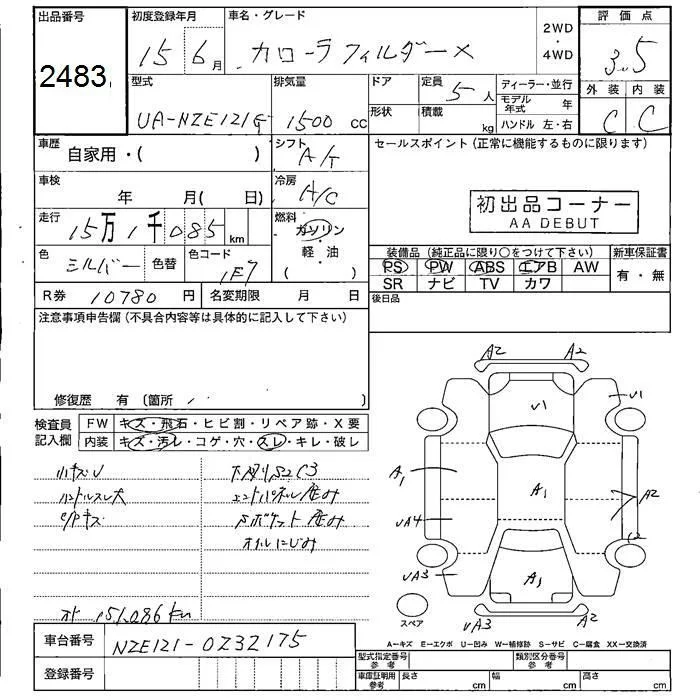 出品番号 初度登録年月 車名・グレード 2WD ・ 4WD 評価点
2483 15 6月 カローラフィルダー X 3.5
型式 排気量 ドア 定員 ディーラー・並行 外装 内装
UA-NZE121G 1500 cc 5人 モデル年式 年 C C
形状 積載 kg ハンドル 左・右
車歴 自家用・( ) シフト A/T セールスポイント (正常に機能するものに限ります)
車検 年 月( 日) 冷房 A/C 初出品コーナー
AA DEBUT
走行 15万1千085 km 燃料 ガソリン
軽・油
( )
色 シルバー 色替 色コード 1E7
装備品 (純正品に限り○をつけて下さい) 新車保証書
PS PW ABS エアB AW 有・無
SR ナビ TV カワ
R券 10780 円 名変期限 月 日 後日品
注意事項申告欄 (不具合内容等は具体的に記入して下さい)
修復歴 有 (箇所
検査員 FW キズ・飛石・ヒビ割・リペア跡・X要
記入欄 内装 キズ・汚レ・コゲ・穴・スレ・キレ・破レ
小キズU 下廻りS2C3
ハンドルスレ大
151,086 km
A2 A2
V1 U1
A1 A1 A2
UA4
UA3 A1
スペア UA3 A2
A─キズ E─エクボ U─凹み W─補修跡 S─サビ C─腐食 XX─交換済
車台番号 NZE121-0232175 型式指定番号 参考 類別区分番号 参考
登録番号 車庫証明用 参考 長さ cm 幅 cm 高さ cm